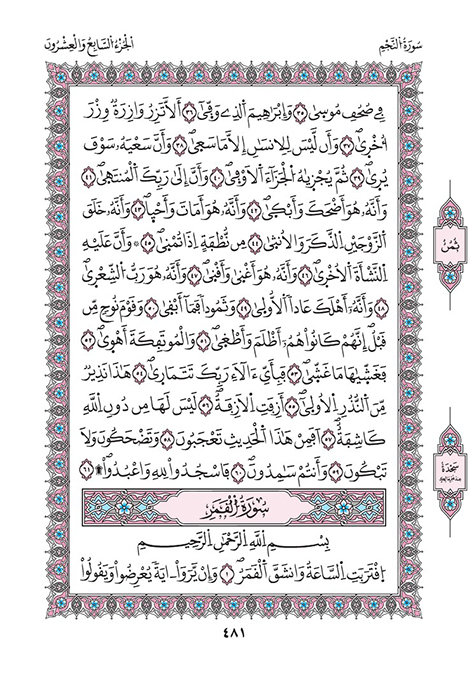 سُورَةُ النَّجْمِ
الجُزْءُ السَّابِعُ وَالْعِشْرُونَ
فِے صُحُفِ مُوسٜىٰ ٣٥ وَإِبْرَٰهِيمَ اَ۬لذِے وَفّٜىٰٓ ٣٦ أَلَّا تَزِرُ وَازِرَةٞ وِزْرَ
أُخْرٜىٰ ٣٧ وَأَن لَّيْسَ لِلِانسَٰنِ إِلَّا مَا سَعٜىٰ ٣٨ وَأَنَّ سَعْيَهُۥ سَوْفَ
يُرٜىٰ ٣٩ ثُمَّ يُجْزَيٰهُ اُ۬لْجَزَآءَ اَ۬لَاوْفٜىٰ ٤٠ وَأَنَّ إِلَىٰ رَبِّكَ اَ۬لْمُنتَهٜىٰ ٤١
وَأَنَّهُۥ هُوَ أَضْحَكَ وَأَبْكٜىٰ ٤٢ وَأَنَّهُۥ هُوَ أَمَاتَ وَأَحْيٜا ٤٣ وَأَنَّهُۥ خَلَقَ
اَ۬لزَّوْجَيْنِ اِ۬لذَّكَرَ وَالُانثٜىٰ ٤٤ مِن نُّطْفَةٍ اِذَا تُمْنٜىٰ ٤٥ وَأَنَّ عَلَيْهِ
اِ۬لنَّشْأَةَ اَ۬لُاخْرٜىٰ ٤٦ وَأَنَّهُۥ هُوَ أَغْنٜىٰ وَأَقْنٜىٰ ٤٧ وَأَنَّهُۥ هُوَ رَبُّ اُ۬لشِّعْرٜىٰ
٤٨ وَأَنَّهُۥٓ أَهْلَكَ عَاداً اَ۬لُّاولٜىٰ ٤٩ وَثَمُوداٗ فَمَآ أَبْقٜىٰ ٥٠ وَقَوْمَ نُوحٖ مِّن
قَبْلُ إِنَّهُمْ كَانُواْ هُمُۥٓ أَظْلَمَ وَأَطْغٜىٰ ٥١ وَالْمُوتَفِكَةَ أَهْوٜىٰ ٥٢
فَغَشّٜيٰهَا مَا غَشّٜىٰ ٥٣ فَبِأَيِّ ءَالَآءِ رَبِّكَ تَتَمَارٜىٰ ٥٤ هَٰذَا نَذِيرٞ
مِّنَ اَ۬لنُّذُرِ اِ۬لُاولٜىٰٓ ٥٥ أَزِفَتِ اِ۬لَازِفَةُ ٥٦ لَيْسَ لَهَا مِن دُونِ اِ۬للَّهِ
كَاشِفَةٌ ٥٧ اَفَمِنْ هَٰذَا اَ۬لْحَدِيثِ تَعْجَبُونَ ٥٨ وَتَضْحَكُونَ وَلَا
تَبْكُونَ ٥٩ وَأَنتُمْ سَٰمِدُونَ ٦٠ فَاسْجُدُواْ لِلهِ وَاعْبُدُواْ ۩ ٦١
سُورَةُ الْقَمَرِ
بِسْمِ اِ۬للَّهِ اِ۬لرَّحْمَٰنِ اِ۬لرَّحِيمِ
اِ۪قْتَرَبَتِ اِ۬لسَّاعَةُ وَانشَقَّ اَ۬لْقَمَرُ ١ وَإِنْ يَّرَوَاْ ايَةٗ يُعْرِضُواْ وَيَقُولُواْ
ثمن
سجدة
٤٨١